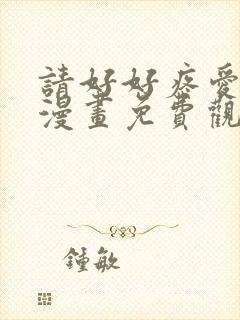 請好好疼愛
漫畫免費觀
鍾敏